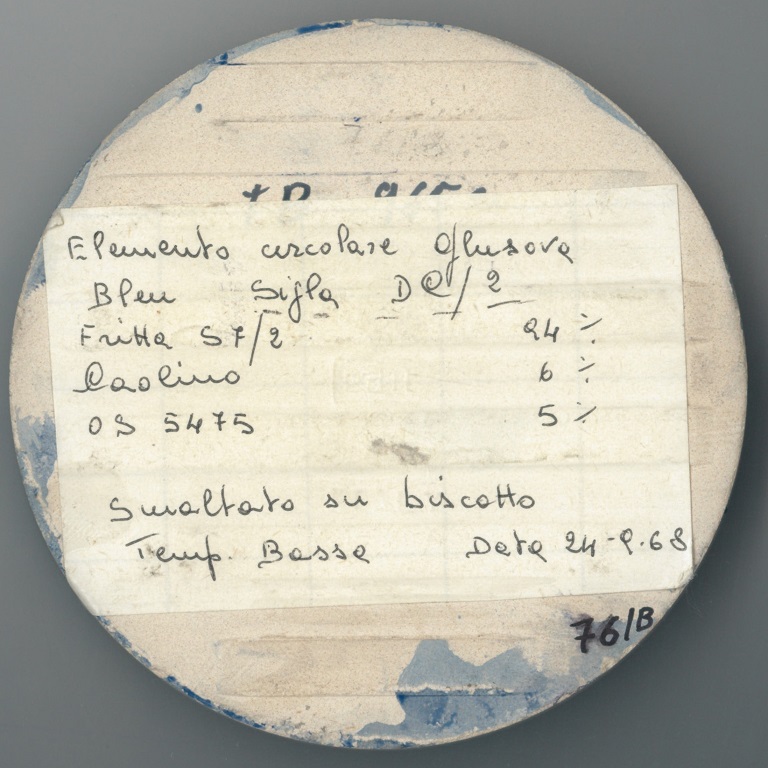 Elemento circolare
Bleu Sigla DC/2
Fritta SF/2 94 %
Caolino 6 %
OS 5475 5 %
Smaltato su biscotto
Temp. Bassa Data 24-9-68
76/B